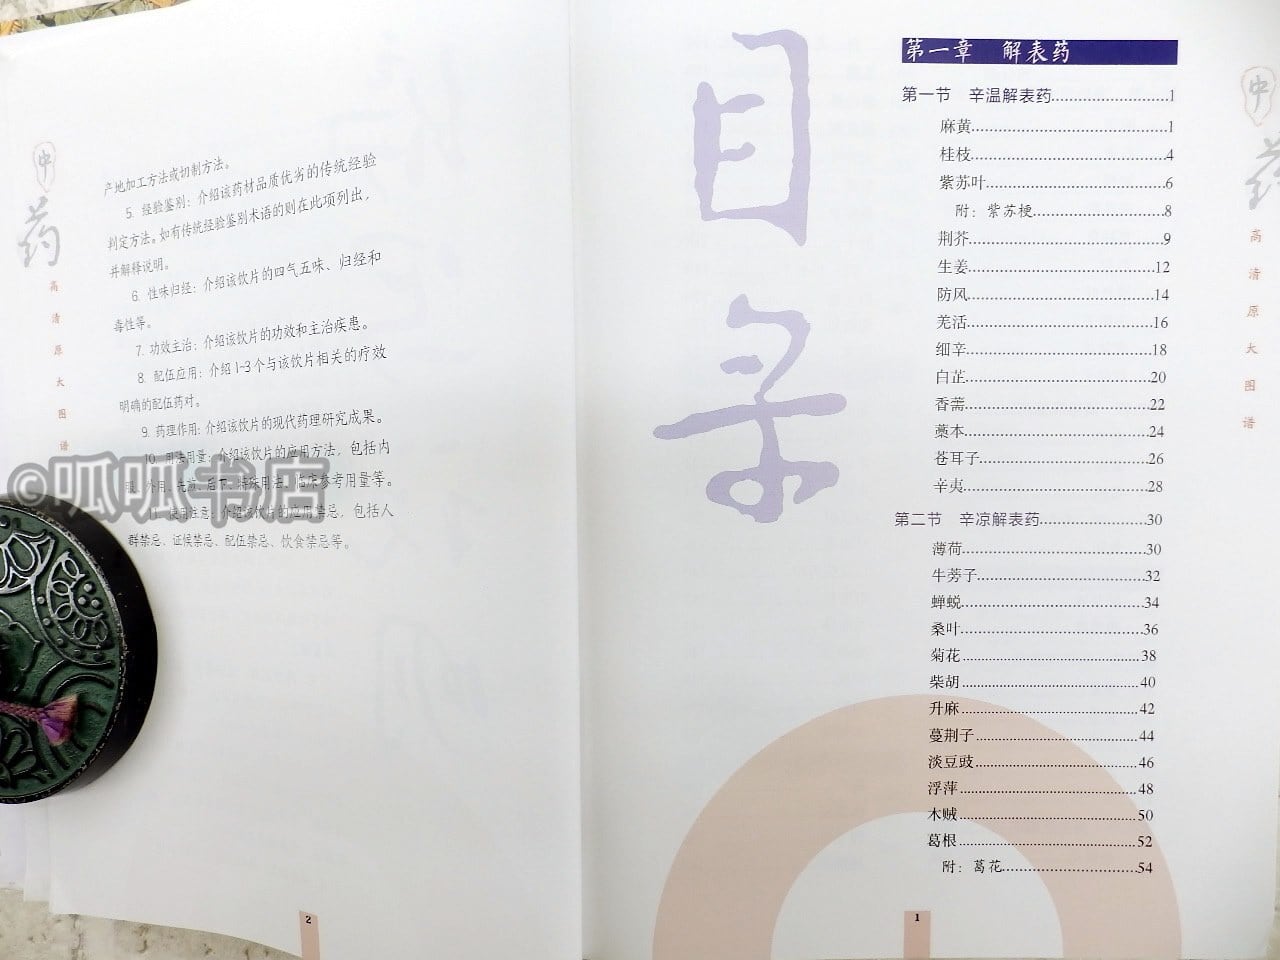 中药
高清原大图谱
产地加工方法或切制方法。
5. 经验鉴别：介绍该药材品质优劣的传统经验
判定方法。如有传统经验鉴别术语的则在此项列出，
并解释说明。
6. 性味归经：介绍该饮片的四气五味、归经和
毒性等。
7. 功效主治：介绍该饮片的功效和主治疾患。
8. 配伍应用：介绍1~3个与该饮片相关的疗效
明确的配伍药对。
9. 药理作用：介绍该饮片的现代药理研究成果。
10. 用法用量：介绍该饮片的应用方法，包括内
服、外用、先煎、后下、特殊用法、临床参考用量等。
11. 使用注意：介绍该饮片的应用禁忌，包括人
群禁忌、证候禁忌、配伍禁忌、饮食禁忌等。
©呱呱书店
2
目录
第一章 解表药
第一节 辛温解表药……1
麻黄……1
桂枝……4
紫苏叶……6
附：紫苏梗……8
荆芥……9
生姜……12
防风……14
羌活……16
细辛……18
白芷……20
香薷……22
藁本……24
苍耳子……26
辛夷……28
第二节 辛凉解表药……30
薄荷……30
牛蒡子……32
蝉蜕……34
桑叶……36
菊花……38
柴胡……40
升麻……42
蔓荆子……44
淡豆豉……46
浮萍……48
木贼……50
葛根……52
附：葛花……54
1
中药
高清原大图谱